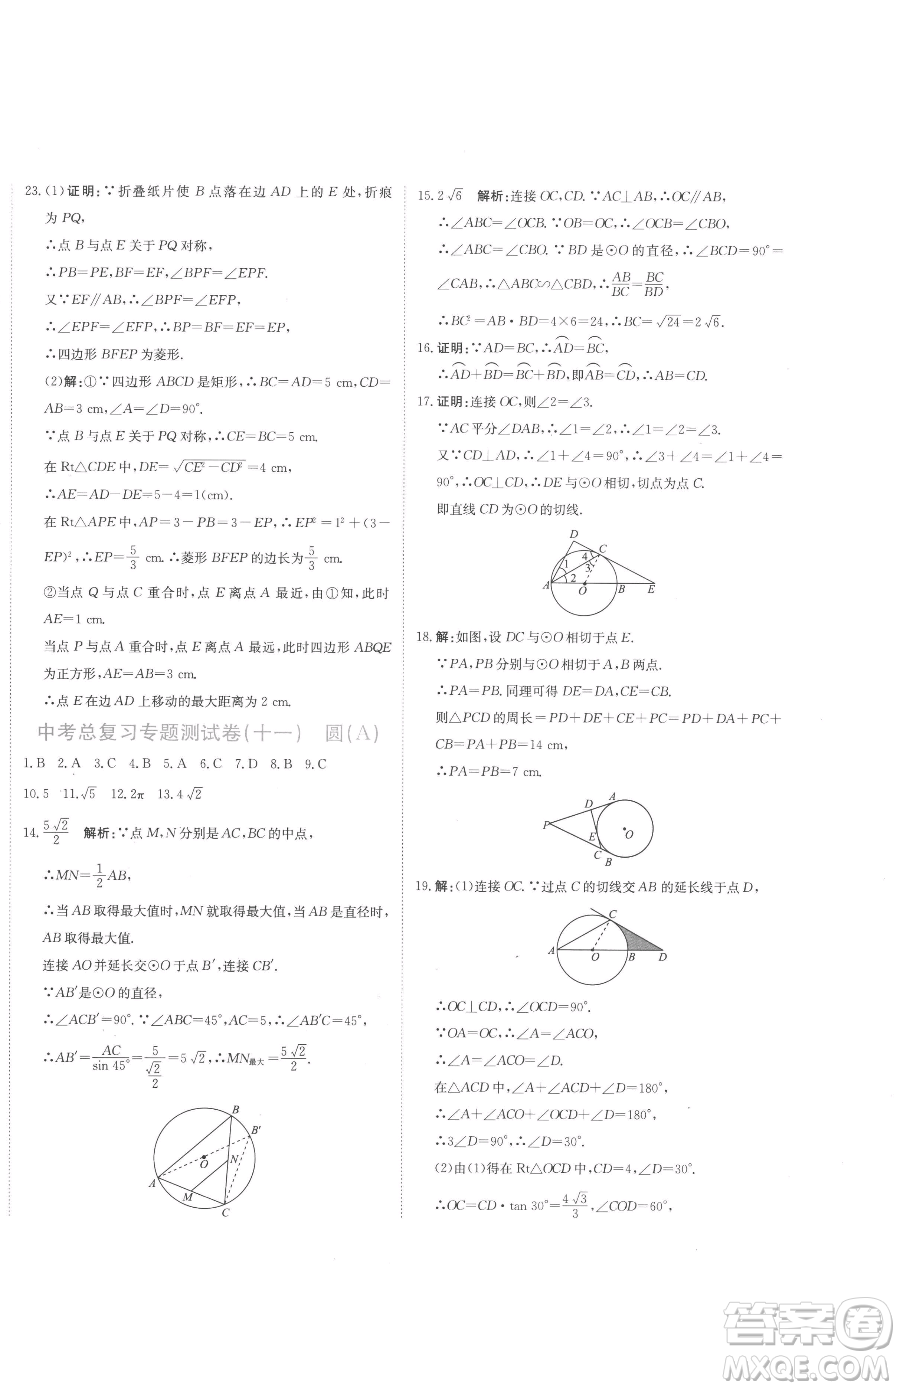 23.(1)证明:∵折叠纸片使 B 点落在边 AD 上的 E 处,折痕
为 PQ,
∴点 B 与点 E 关于 PQ 对称,
∴PB=PE,BF=EF,∠BPF=∠EPF.
又∵EF∥AB,∴∠BPF=∠EFP,
∴∠EPF=∠EFP,∴BP=BF=EF=EP,
∴四边形 BFEP 为菱形.
(2)解:①∵四边形 ABCD 是矩形,∴BC=AD=5 cm,CD=
AB=3 cm,∠A=∠D=90°.
∵点 B 与点 E 关于 PQ 对称,∴CE=BC=5 cm.
在 Rt△CDE 中,DE=√(CE²-CD²)=4 cm,
∴AE=AD-DE=5-4=1(cm).
在 Rt△APE 中,AP=3-PB=3-EP,∴EP²=1²+(3-
EP)²,∴EP=5/3 cm.∴菱形 BFEP 的边长为5/3 cm.
②当点 Q 与点 C 重合时,点 E 离点 A 最近,由①知,此时
AE=1 cm.
当点 P 与点 A 重合时,点 E 离点 A 最远,此时四边形 ABQE
为正方形,AE=AB=3 cm,
∴点 E 在边 AD 上移动的最大距离为 2 cm.
中考总复习专题测试卷(十一) 圆(A)
1.B 2.A 3.C 4.B 5.A 6.C 7.D 8.B 9.C
10.5 11.√5 12.2π 13.4√2
14.5√2/2 解析:∵点 M,N 分别是 AC,BC 的中点,
∴MN=1/2AB,
∴当 AB 取得最大值时,MN 就取得最大值,当 AB 是直径时,
AB 取得最大值.
连接 AO 并延长交⊙O 于点 B′,连接 CB′.
∵AB′是⊙O 的直径,
∴∠ACB′=90°.∵∠ABC=45°,AC=5,∴∠AB′C=45°,
∴AB′=AC/sin 45°=5/(√2/2)=5√2,∴MN最大=5√2/2.
B
B′
O
N
A
M
C
15.2√6 解析:连接 OC,CD.∵AC⊥AB,∴OC∥AB,
∴∠ABC=∠OCB.∵OB=OC,∴∠OCB=∠CBO,
∴∠ABC=∠CBO.∵BD 是⊙O 的直径,∴∠BCD=90°=
∠CAB,∴△ABC∽△CBD,∴AB/BC=BC/BD,
∴BC²=AB·BD=4×6=24,∴BC=√24=2√6.
16.证明:∵AD=BC,∴⌒AD=⌒BC,
∴⌒AD+⌒BD=⌒BC+⌒BD,即⌒AB=⌒CD,∴AB=CD.
17.证明:连接 OC,则∠2=∠3.
∵AC 平分∠DAB,∴∠1=∠2,∴∠1=∠2=∠3.
又∵CD⊥AD,∴∠1+∠4=90°,∴∠3+∠4=
90°,∴OC⊥CD,∴DE 与⊙O 相切,切点为点 C.
即直线 CD 为⊙O 的切线.
D
C
4
3
1
2
A
O
B
E
18.解:如图,设 DC 与⊙O 相切于点 E.
∵PA,PB 分别与⊙O 相切于 A,B 两点.
∴PA=PB.同理可得 DA=DE,CE=CB,
则△PCD 的周长=PD+DE+PC+CE=PD+DA+PC+
CB=PA+PB=14 cm,
∴PA=PB=7 cm.
A
D
P
O
E
C
B
19.解:(1)连接 OC.∵过点 C 的切线交 AB 的延长线于点 D,
C
A
O
B
D
∴OC⊥CD,∴∠OCD=90°.
∵OA=OC,∴∠A=∠ACO.
∵AC=DC,∴∠A=∠D.
在△ACD 中,∠A+∠ACD+∠D=180°,
∴∠A+∠ACO+∠OCD+∠D=180°,
∴3∠D=90°,∴∠D=30°.
(2)由(1)得在 Rt△OCD 中,CD=4,∠D=30°.
∴OC=CD·tan 30°=4√3/3,∠COD=60°,
答案圈
MXQE.COM